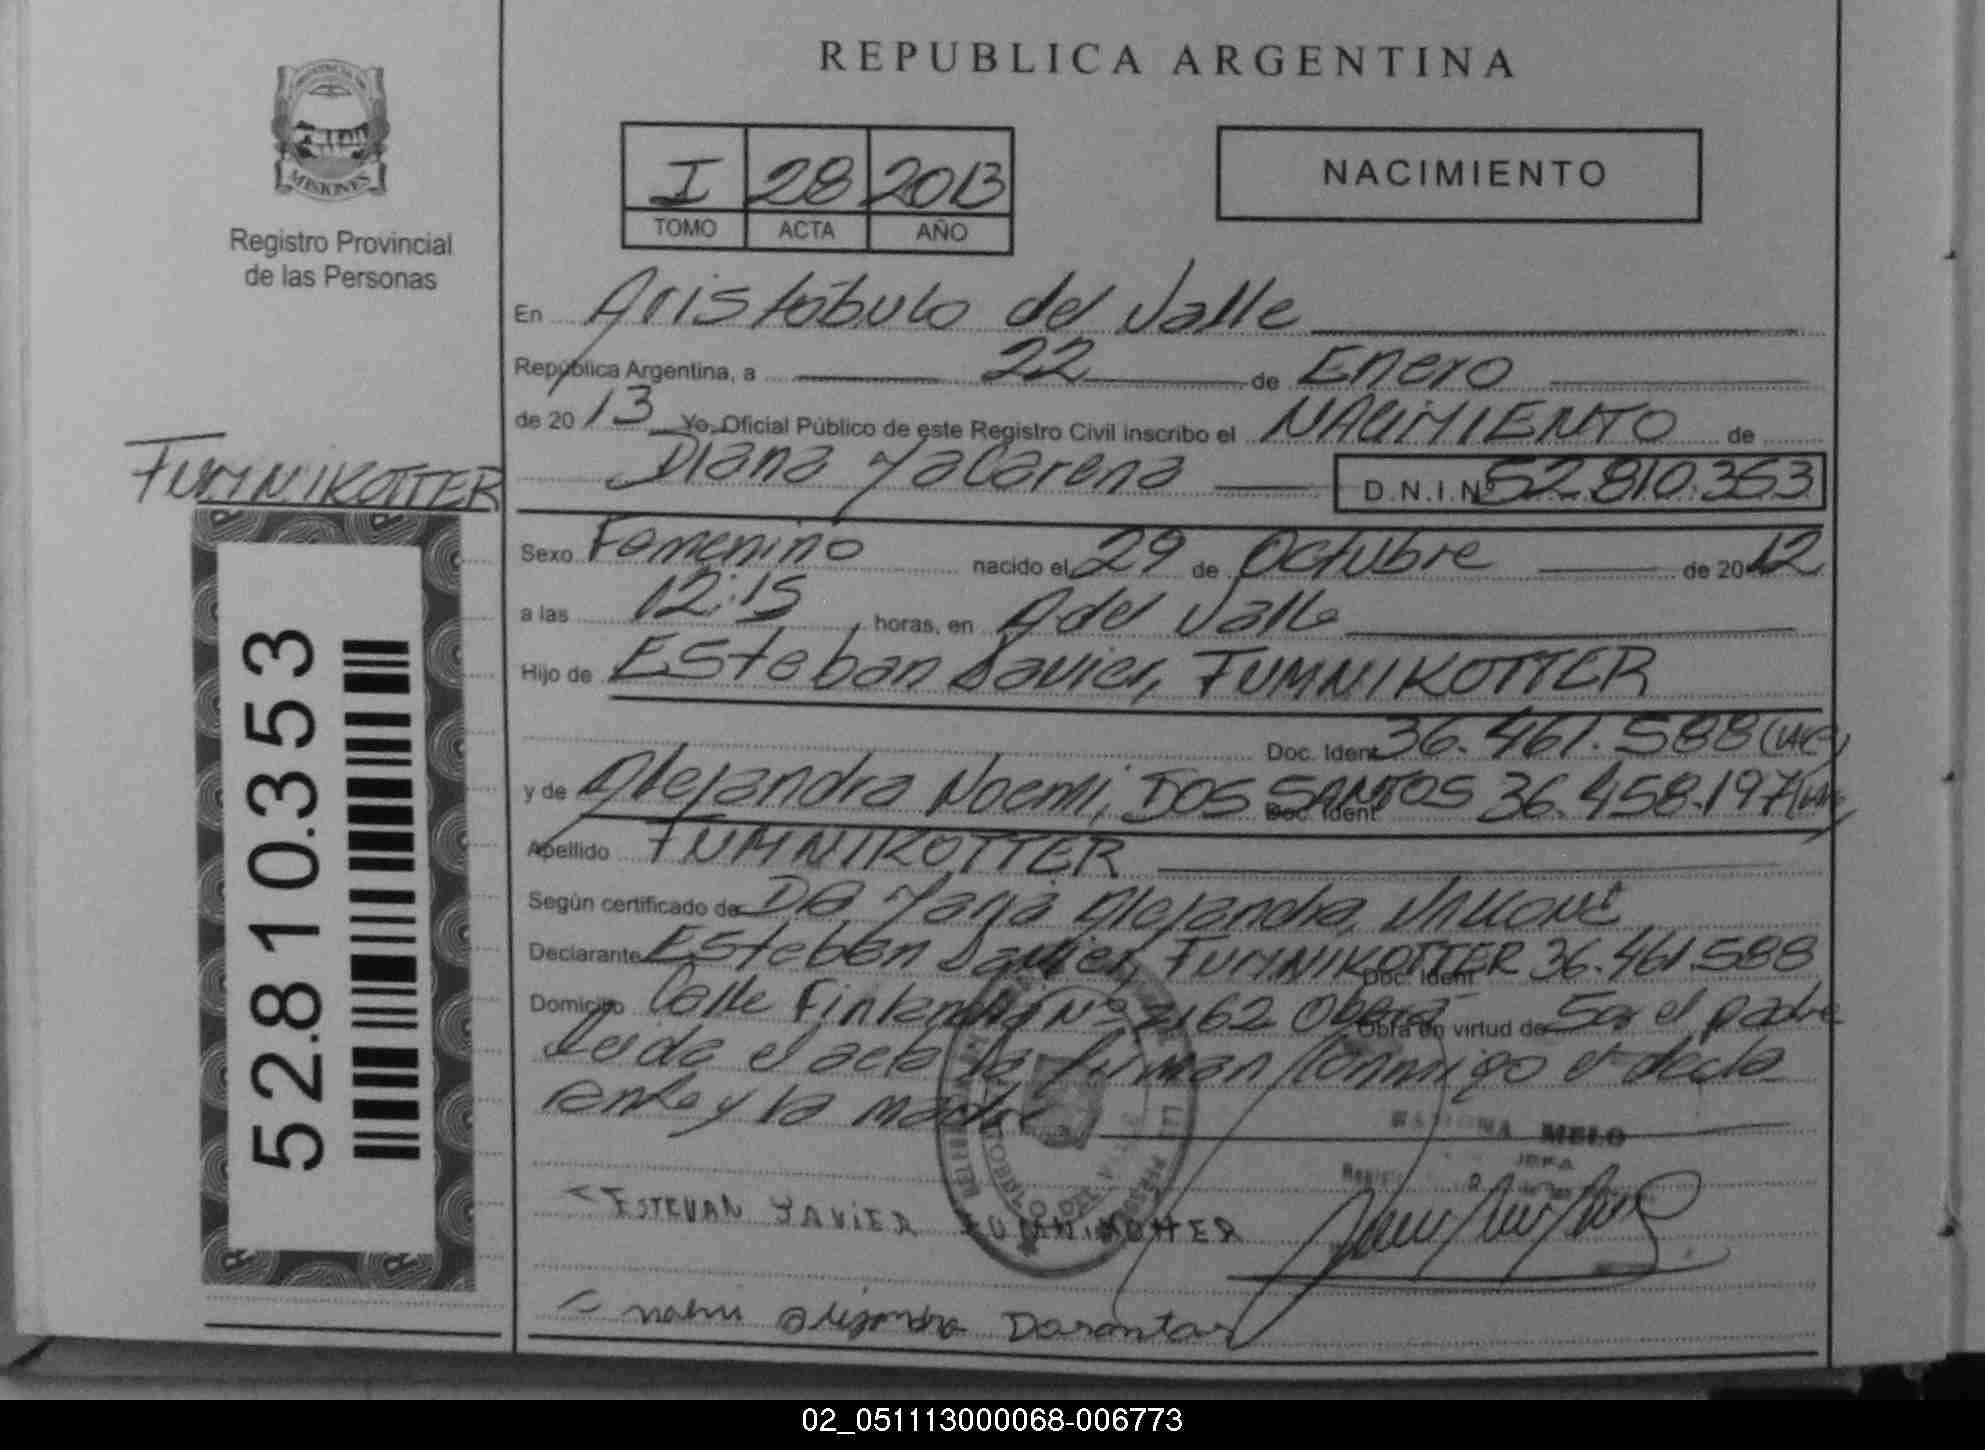 REPUBLICA ARGENTINA
MISIONES
Registro Provincial
de las Personas
I 28 2013
TOMO ACTA AÑO
NACIMIENTO
En Aristóbulo del Valle
República Argentina, a 22 de Enero
de 2013 Yo, Oficial Público de este Registro Civil inscribo el NACIMIENTO de
Diana Macarena D.N.I.Nº 52.810.353
FUMNIKOTTER
52.810.353
Sexo Femenino nacido el 29 de Octubre de 2012
a las 12:15 horas, en A del Valle
Hijo de Esteban Javier, FUMNIKOTTER
Doc. Ident 36.461.588
y de Alejandra Noemi, DOS SANTOS Doc. Ident 36.458.197
Apellido FUMNIKOTTER
Según certificado de DRA María Alejandra,
Declarante Esteban Javier, FUMNIKOTTER Doc. Ident 36.461.588
Domicilio Calle Finlandia Nº 2162 Oberá Obra en virtud de Ser el padre
Leida el acta la firman conmigo el decla
rante y la madre
MELO
JEFA
ESTEVAN JAVIER FUMNIKOTTER
02_051113000068-006773